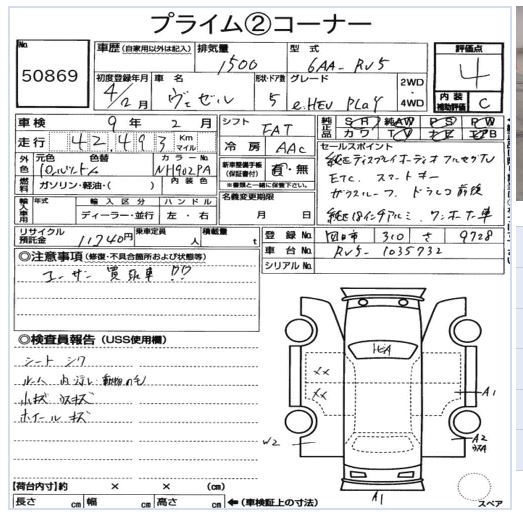 プライム②コーナー
No.
50869
車歴 (自家用以外は記入) 排気量 型式 評価点
1500 6AA-RV5 4
初度登録年月 車名 形状・ドア数 グレード 2WD・4WD 内装補助評価 C
4/2月 ヴェゼル 5 e:HEV PLaY
車検 9年 2月 シフト FAT
純正品 SR 純AW PS PW
カワ TV ナビ エアB
走行 42,493 Km マイル 冷房 AAC
セールスポイント
純正ディスプレイオーディオ フルセグTV
ETC. スマートキー
ガラスルーフ. ドラレコ前後
純正18インチアルミ. ワンオーナー車
外色 元色 色替 カラーNo. NH902PA
内装色
新車整備手帳(保証書付) 有・無
※書類と一緒に保管下さい。
燃料 ガソリン・軽油・( )
輸入車用 年式 輸入区分 ハンドル
ディーラー・並行 左・右
名義変更期限
月 日
リサイクル預託金 11,740円 乗車定員 人 積載量 t
登録No. 四日市 310 さ 9728
車台No. RV5-1035732
シリアルNo.
◎注意事項 (修復・不具合個所および状態等)
ユーザー買取車!!
◎検査員報告 (USS使用欄)
シート シワ
ルーム内 汚レ 動物の毛
小キズ
ホイール キズ
HEV
××
××
A1
W2
A2
A1
スペア
【荷台内寸】約 × × (cm)
長さ cm 幅 cm 高さ cm ←(車検証上の寸法)